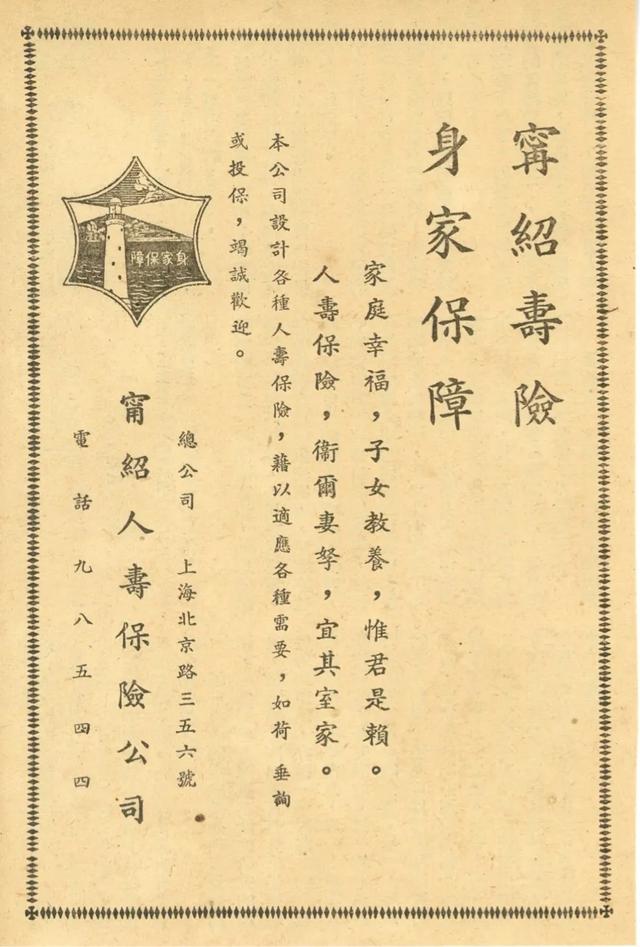 甯紹壽險
身家保障
家庭幸福，子女教養，惟君是賴。
人壽保險，衞爾妻孥，宜其室家。
本公司設計各種人壽保險，藉以適應各種需要，如荷 垂詢
或投保，竭誠歡迎。
身家保障
總公司 上海北京路三五六號
甯紹人壽保險公司
電話 九八五四四